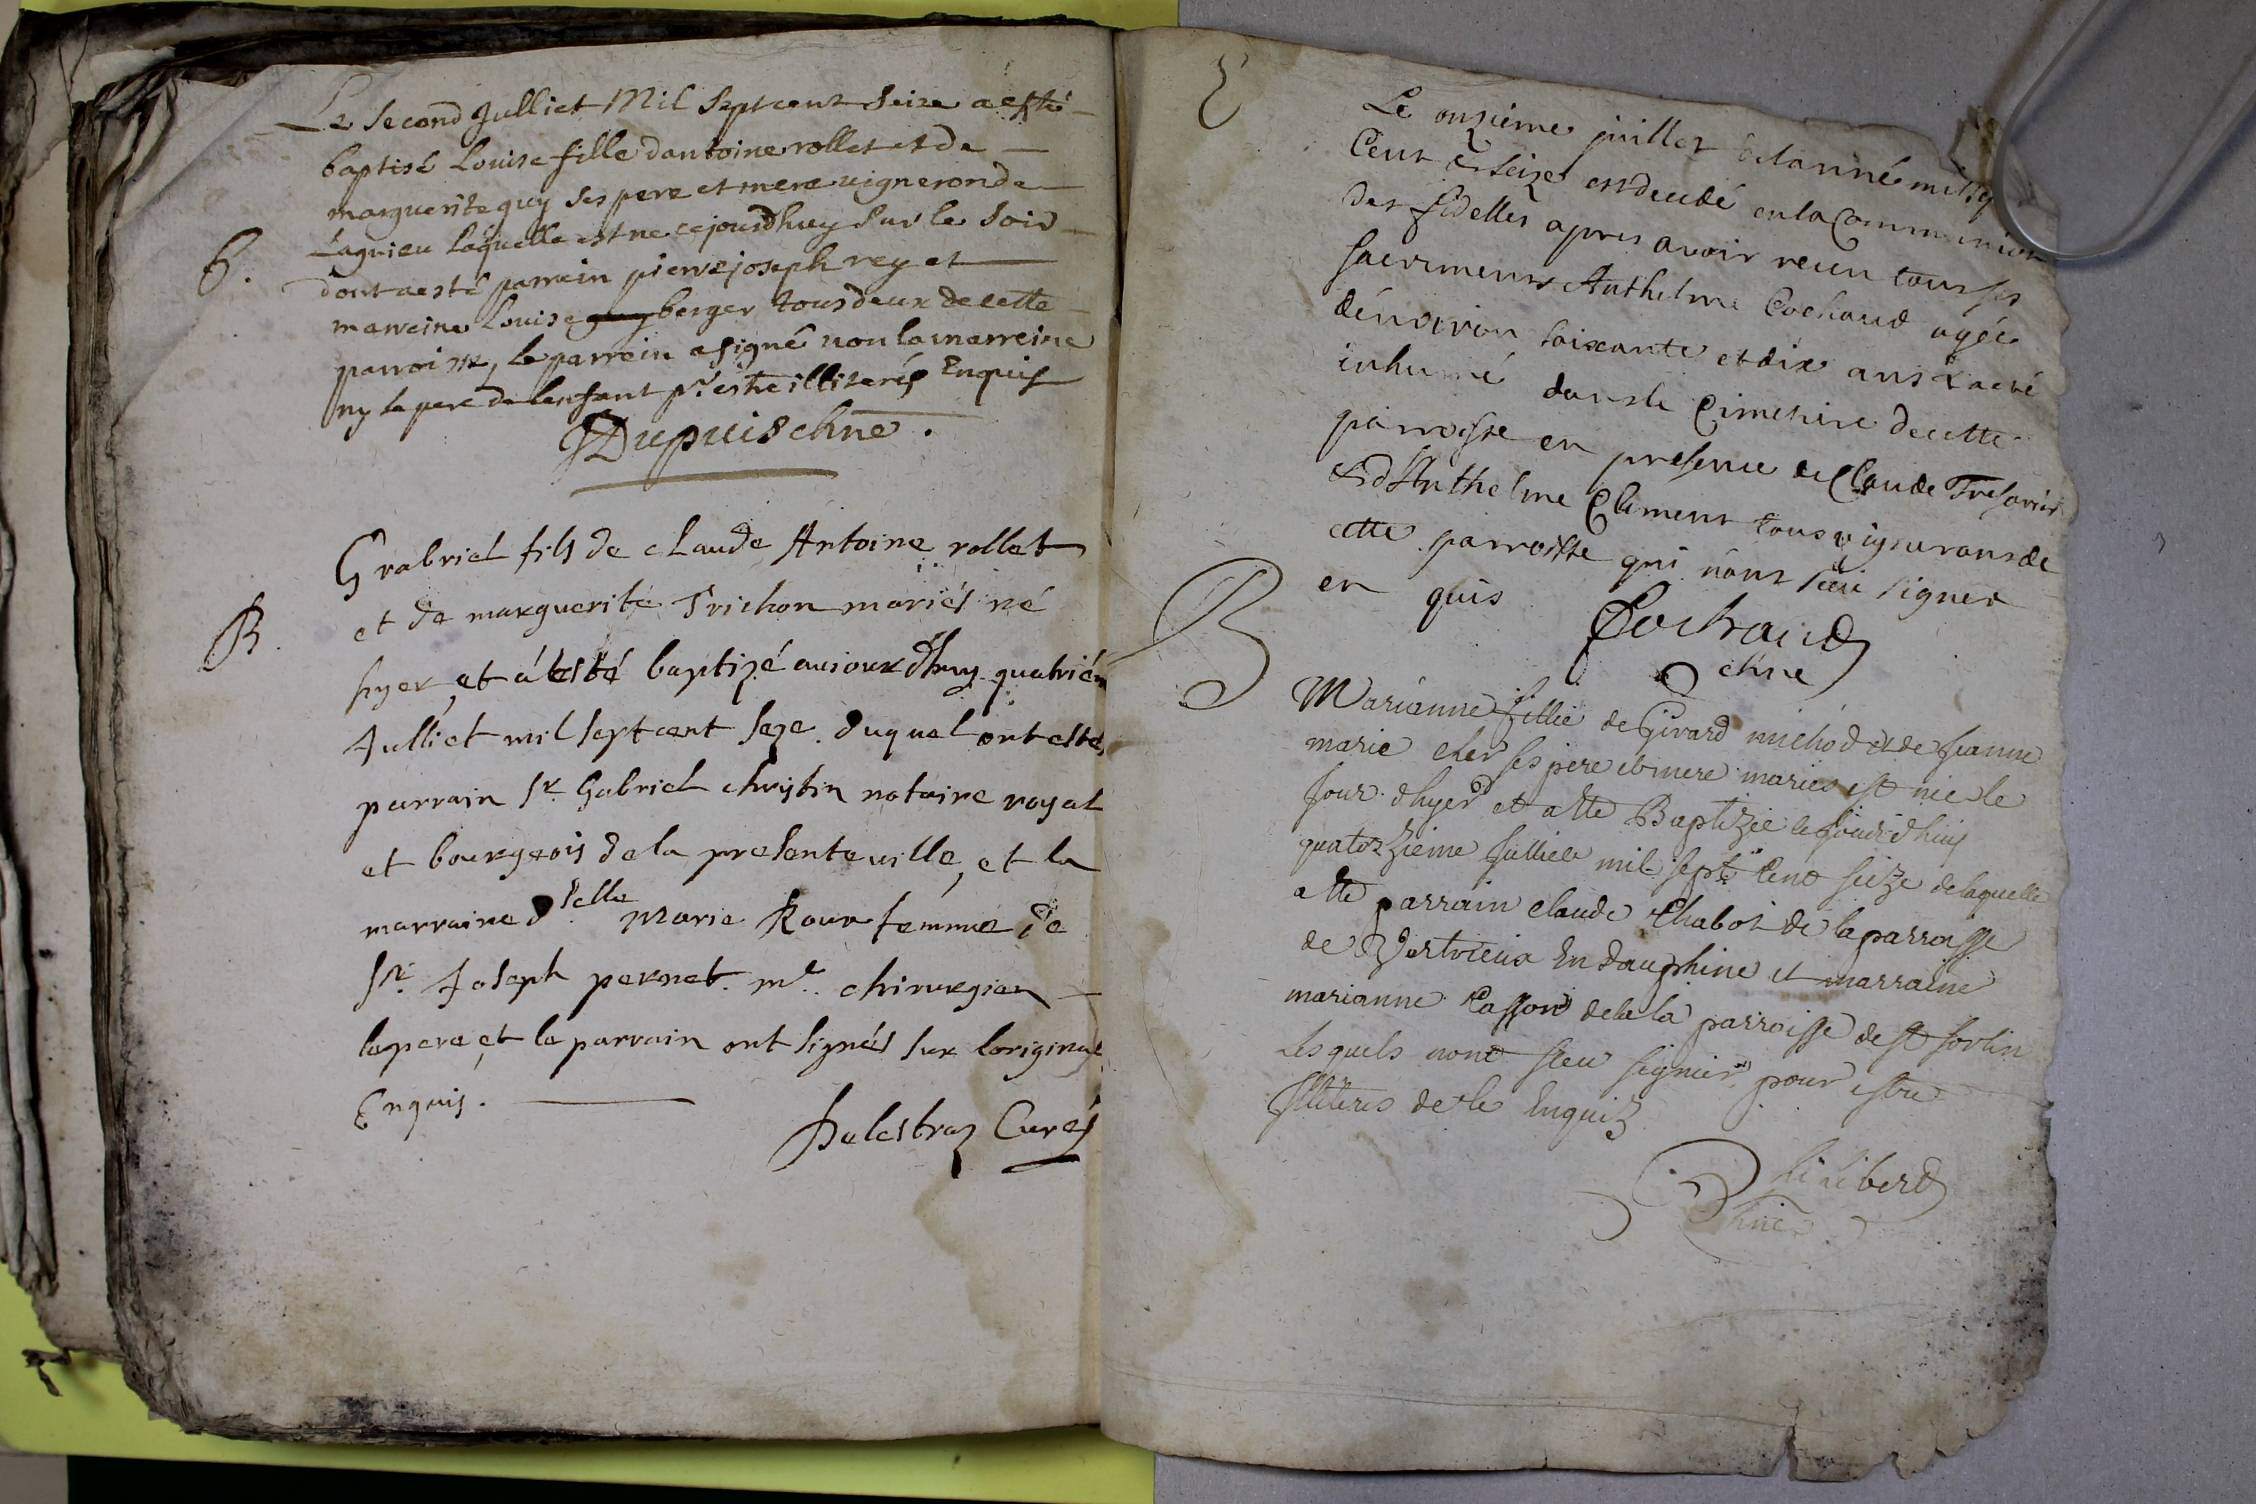 Le second Julliet Mil Sept cent Seize a esté
baptisé Louise fille dantoine rollet et de
marguerite guy ses pere et mere vigneron de
Lagnieu laquelle est ne cejourdhuy sur le soir
B.
dont a esté parrein pierre joseph rey et
marreine Louise guy berger tous deux de cette
parroisse, le parrein a signé non la marreine
ny le pere de lenfant pr estre illiterés Enquis
Dupuis chne.
Grabriel fils de claude Antoine rollet
et de marguerite Trichon mariés né
B.
hyer et a esté baptizé aujourdhuy quatriém
Julliet mil sept cent seze duquel ont esté
parrain sr. Gabriel christin notaire royal
et bourgeois de la presente ville, et la
marraine dselle marie Roux femme de
sr. Joseph pernet mr. chirurgien
le pere et le parrain ont signés sur loriginal
Enquis.
Balestraz Curé
Le onzieme juillet de lanné mil sep
Cent & seize est decedé en la Communion
des fidelles apres avoir receu tous ses
sacrements Anthelme Cochaud agée
dénviron soixante et dix ans & a eté
inhumé dans le Cimetiere de cette
parroisse en presence de Claude Tresorier
& dAnthelme Clement tous vignerons de
cette parroisse qui nont sceu signer
en quis
Cochaud
chne
B
Marianne fillie de Girard michod et de Jeanne
marie cher ses pere et mere maries est nie le
Jour dhyer et a ette Baptizée ce jourd'huy
quatorzieme Julliet mil sept Cent seize de laquelle
a ette parrain claude Chabot de la parroisse
de Vertrieux En dauphine et marraine
marianne Casson de la parroisse de st sorlin
Lesquels nont sceu signier pour estre
Illiteres de ce Enquis
Philibert
chne